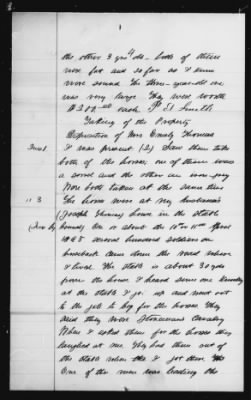 1
the other 3 yrs old - both of others
were fat and so far as I knew
were sound the three-year-old one
was very large They were worth
$200 each P. H. Smith
Taking of the Property
Deposition of Mrs Emily Thomas
I was present (2) Saw them take
both of the horses, one of them was
a sorrel and the other an iron-gray
Were both taken at the same time
" 3 The horse were at my husband's
(Joseph Thomas) home in the stable
On about the 10th or 11th April
1865 several hundred soldiers on
horseback came down the road where
I lived. The stable is about 30 yds
from the house I heard some one
at the stable I got up and went out
to the lot to beg for the horses They
said they were Stoneman's Cavalry
When I asked them for the horses they
laughed at me They had them out of
the stable when I got there
One of the men was leading the